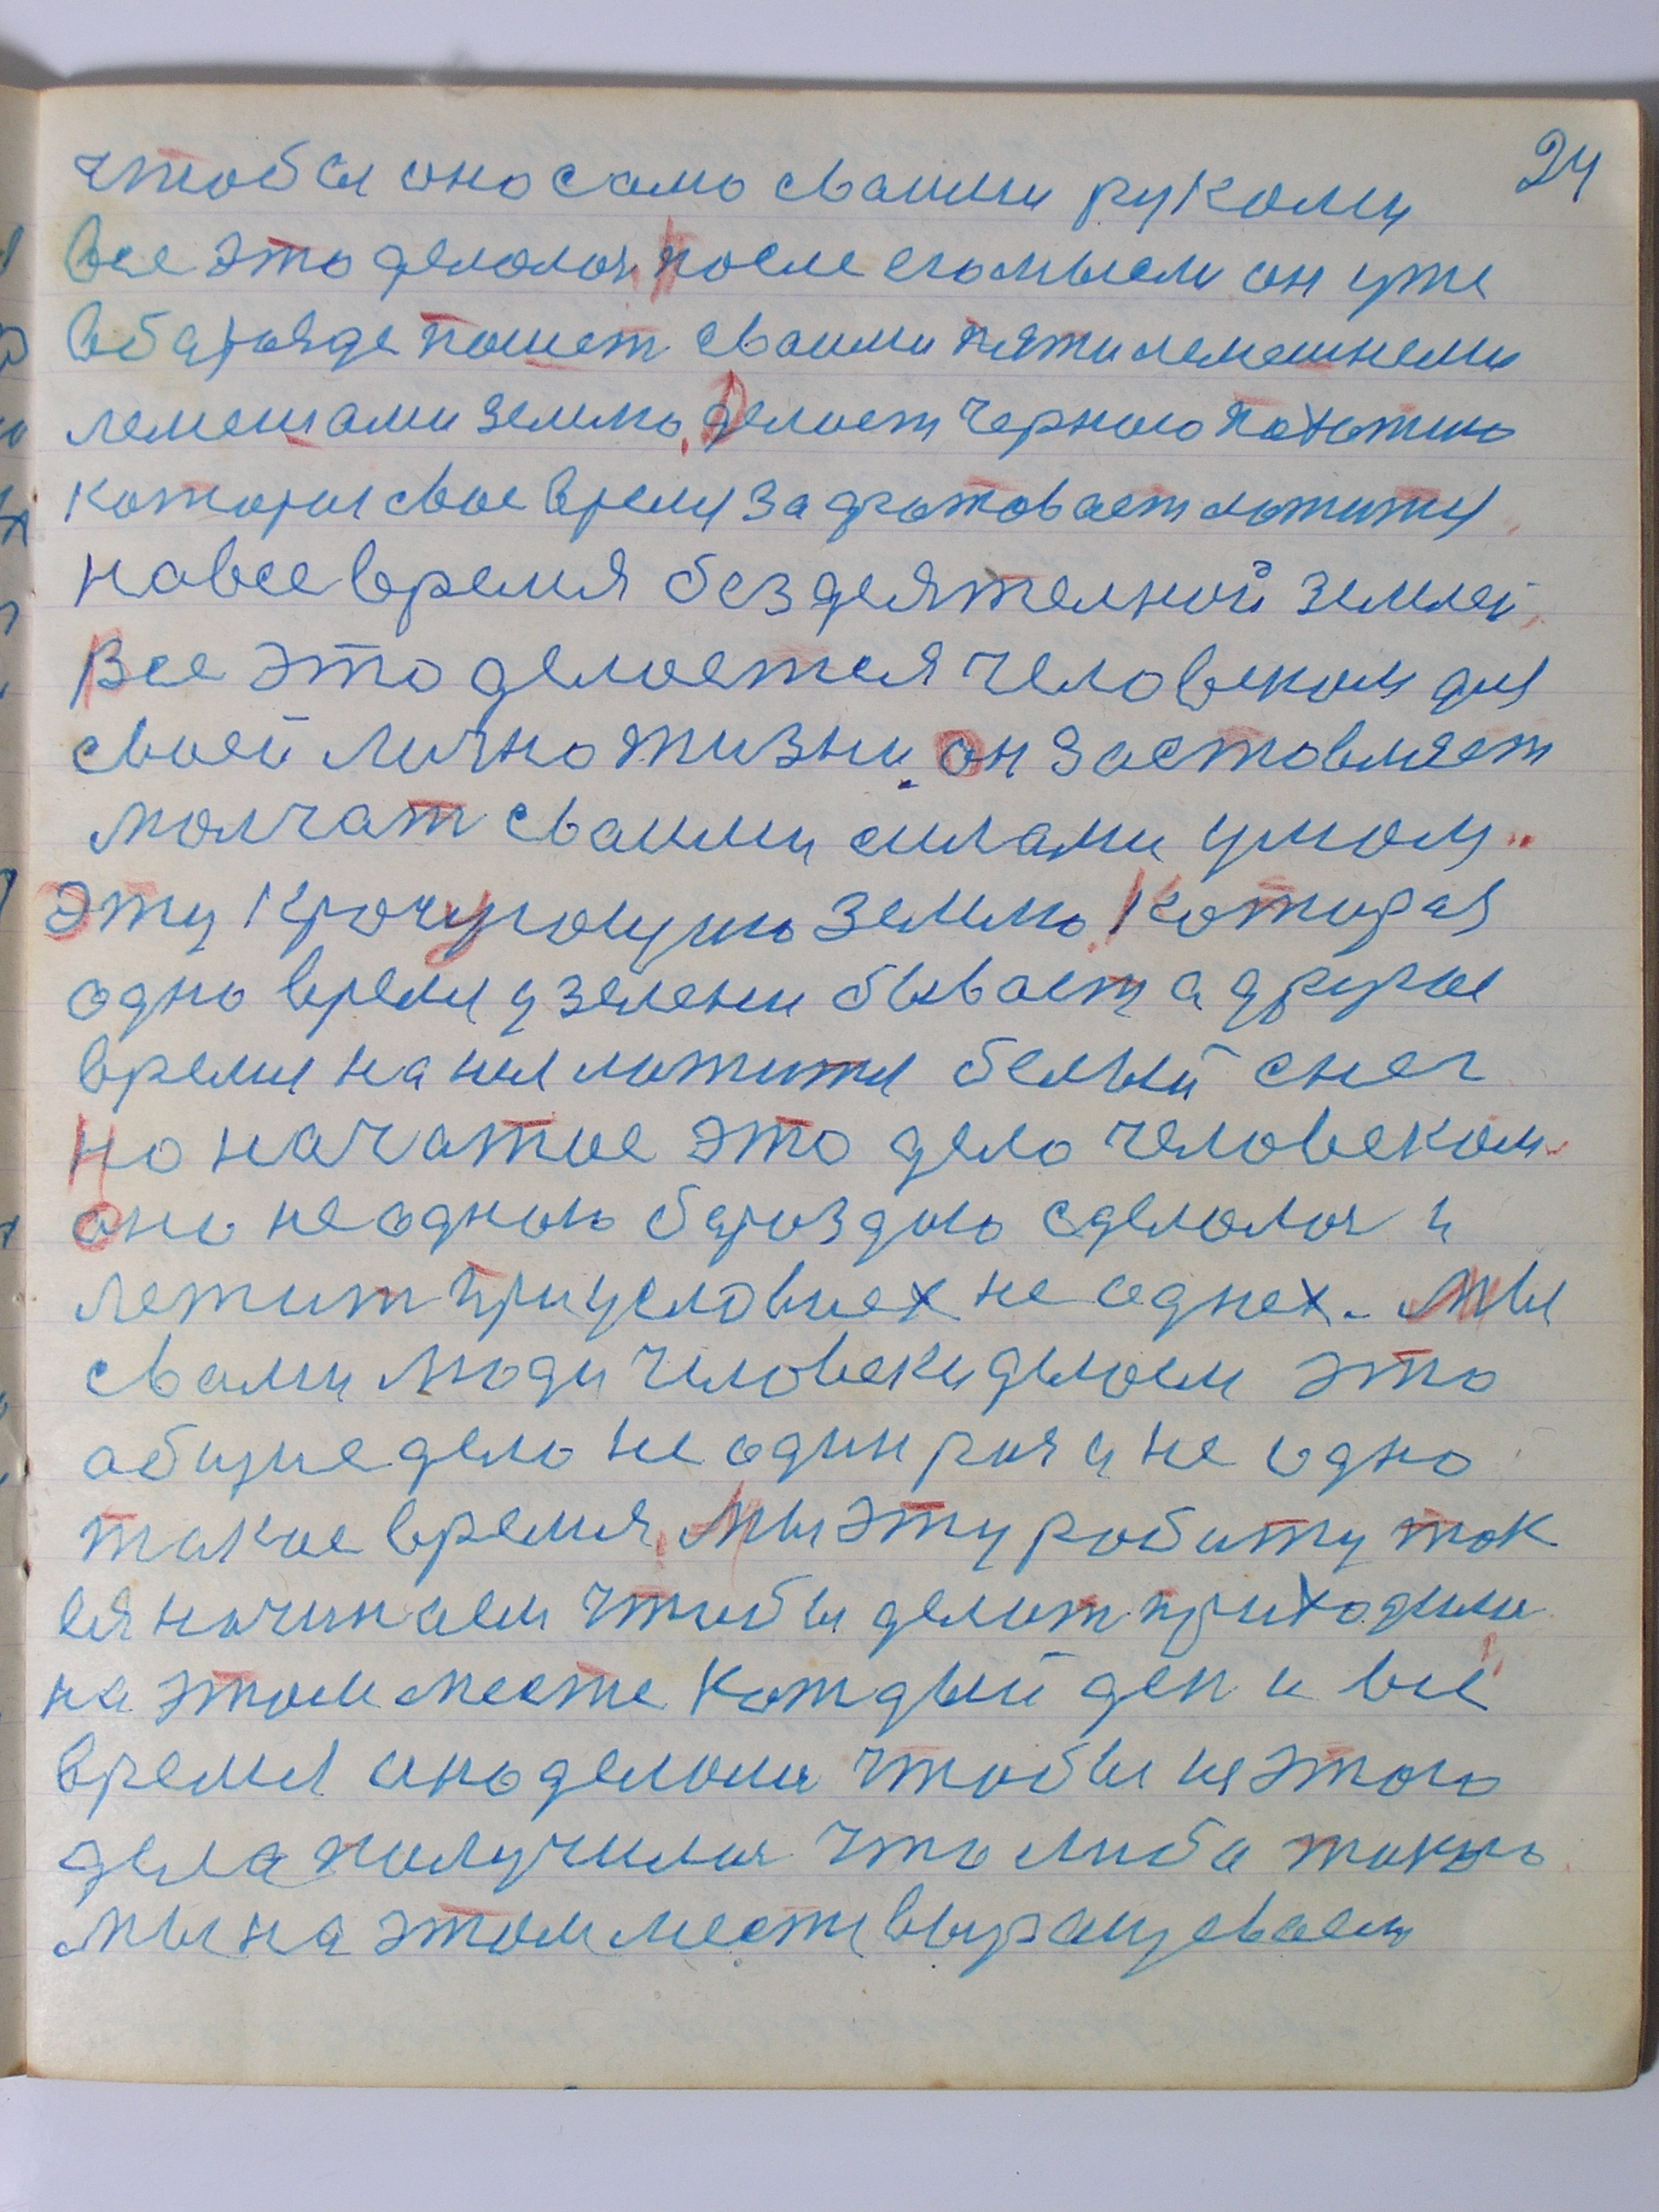 24
чтобы оно само сваими рукоми
все это делолоя. После его мысли он уже
в барозде пошет сваими пятилемешнеми
лемешами землю. Делоет черною похотию
которая свое время задготовоет ложится
на все время бездеятелной землей.
Все это делоется человеком для
своей лично жизни. он застовляет
молчат сваими силами умом..
эту землю. Которая
одно время у зелени бывает а другое
время на ней ложится белый снег
Но начатое это дело человеком.
оно не одною бороздою сделолоя и
лежит при условиех не однех. Мы
с вами люди человеки делоем это
общие дело не один роя и не одно
такое время. Мы эту роботу так
ея начинаем чтобы делат приходили
на этом месте каждый ден и всё
время оно делолоя чтобы из этого
дела получилоя что либо такое
мы на этом месте выращеваем